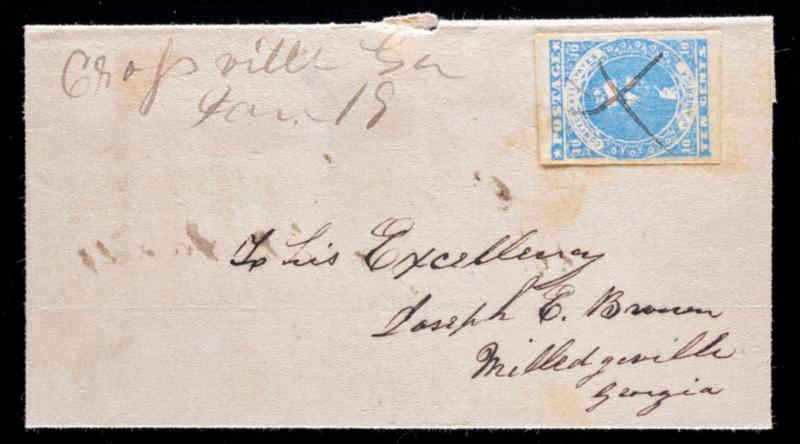 Crossville Ga
Jan. 19
POSTAGE
TEN CENTS
10
10
10
10
CONFEDERATE STATES
OF AMERICA
To his Excellency
Joseph E. Brown
Milledgeville
Georgia